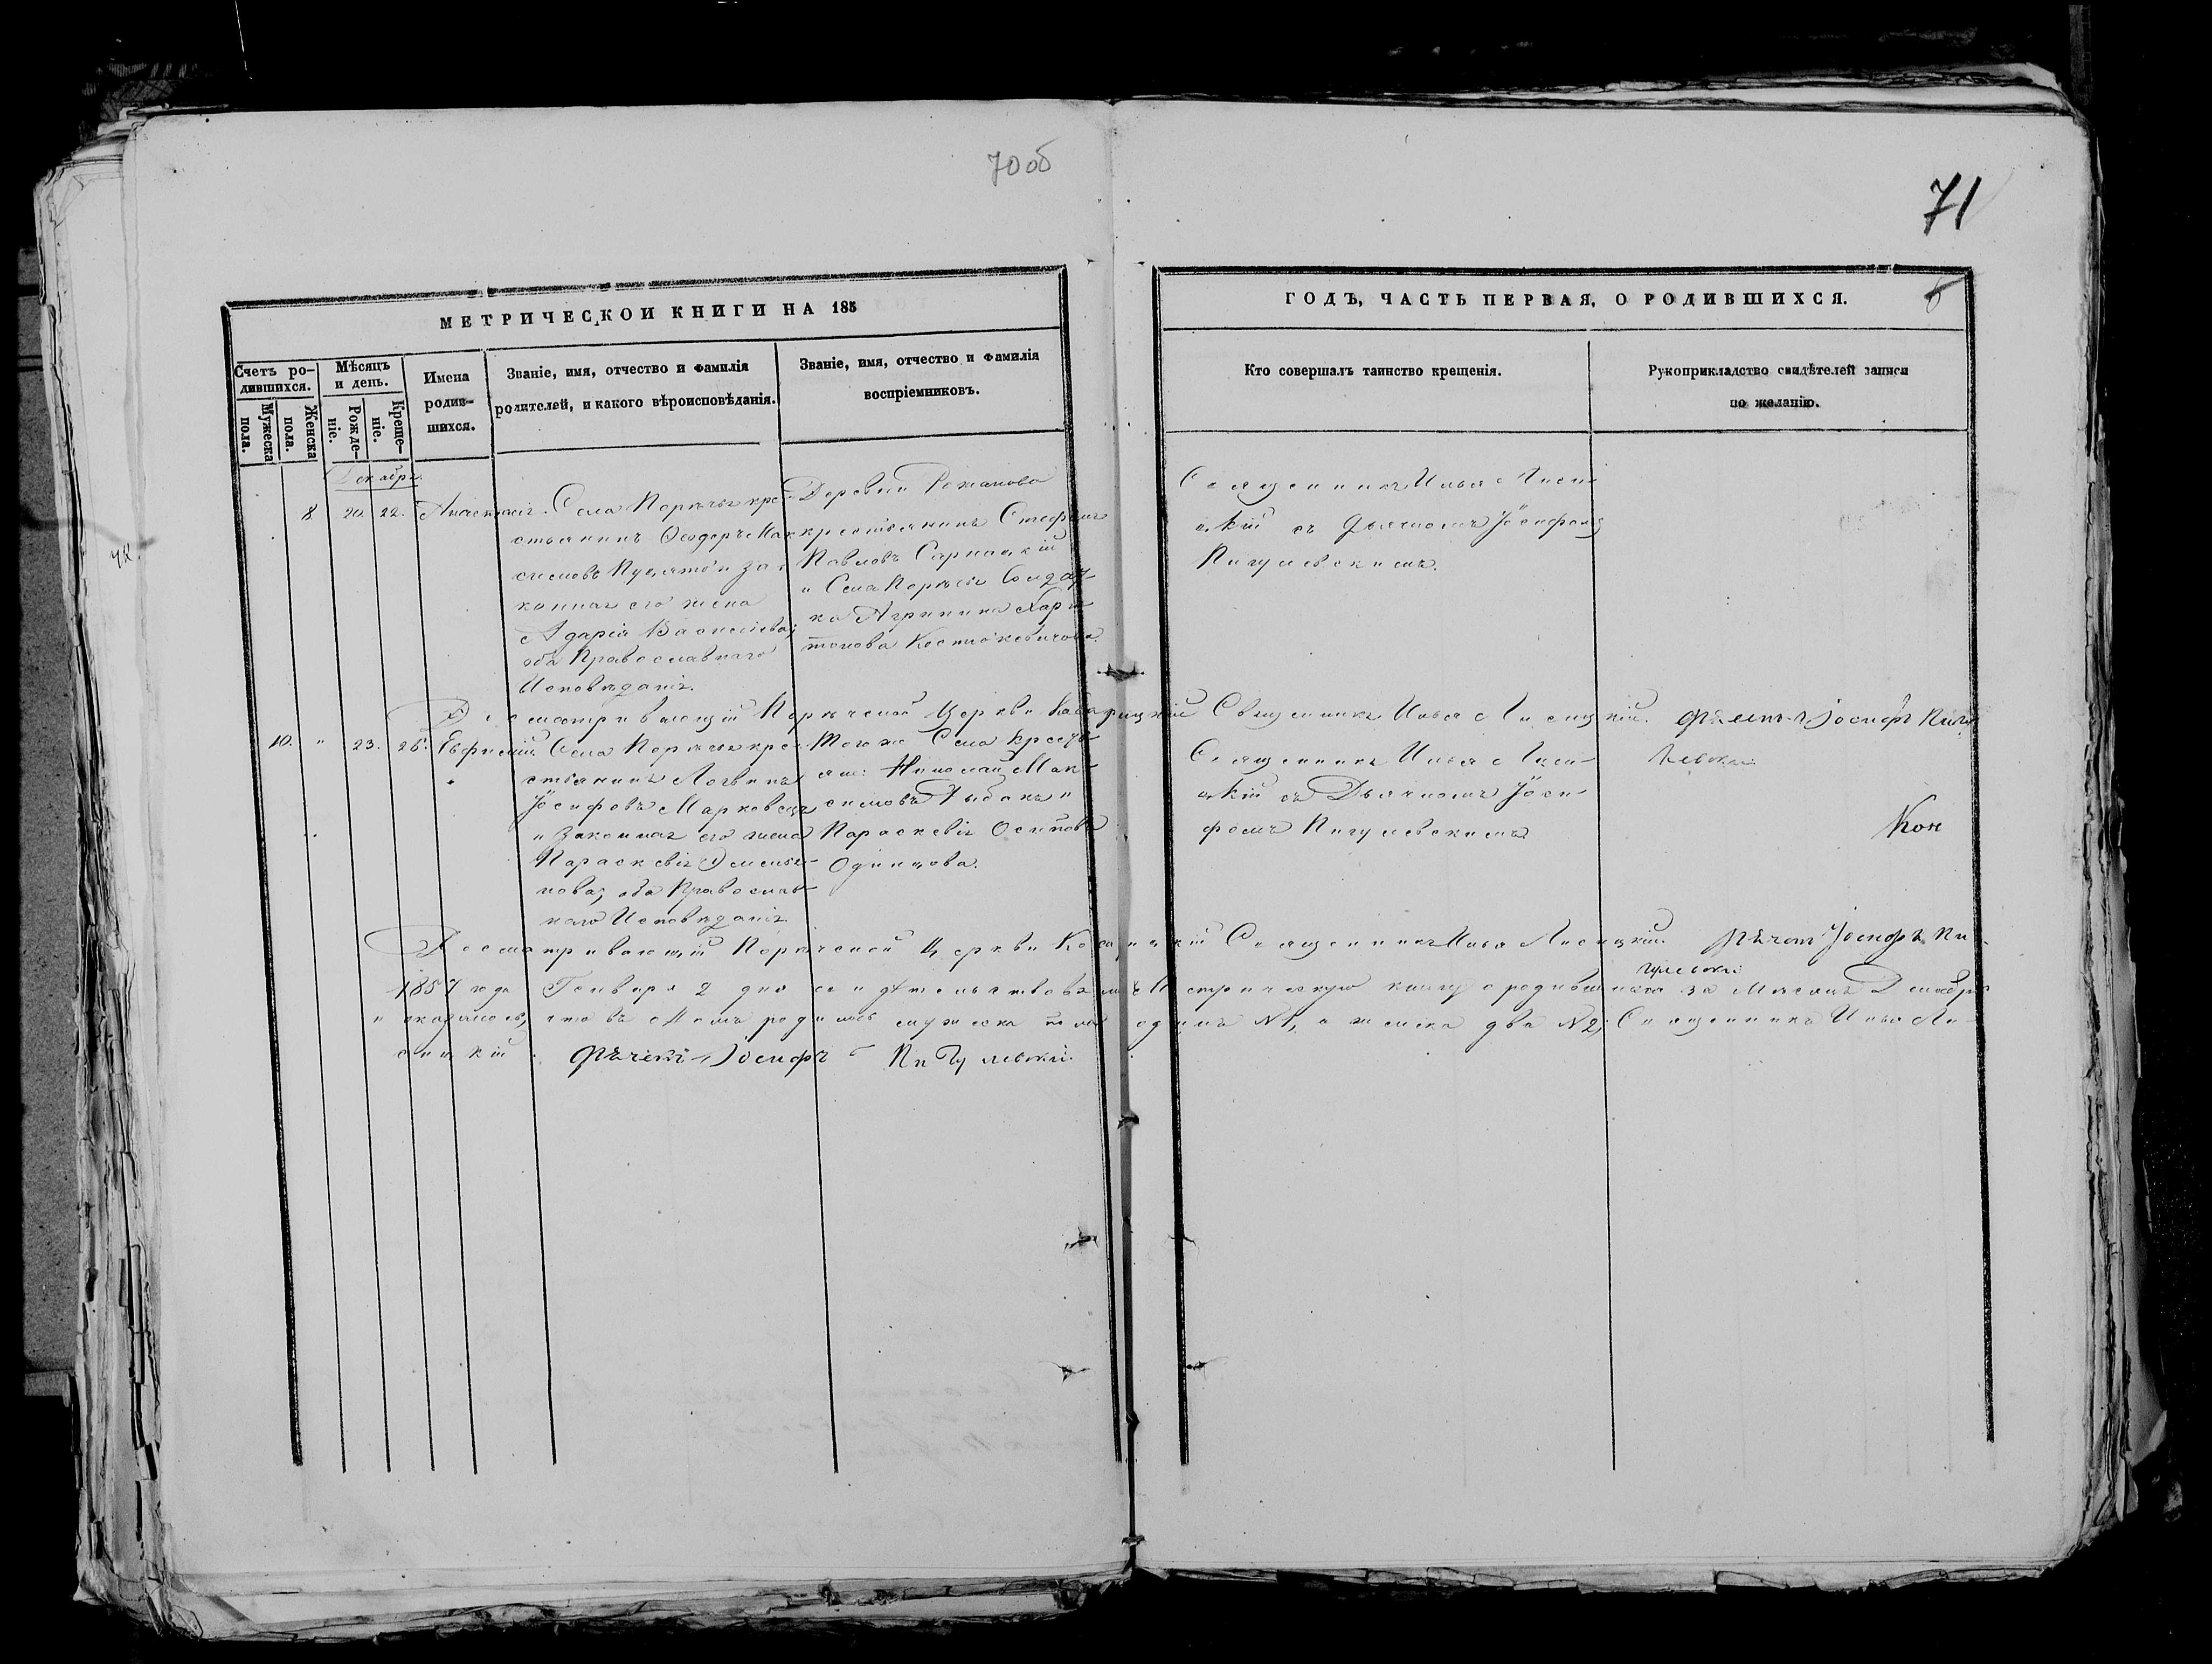 70 об
71
МЕТРИЧЕСКОЙ КНИГИ НА 185
Счетъ ро-
дившихся.
Мужеска
пола.
Женска
пола.
Мѣсяцъ
и день.
Рожде-
ніе.
Креще-
ніе.
Имена
родив-
шихся.
Званіе, имя, отчество и фамилія
родителей, и какого вѣроисповѣданія.
Званіе, имя, отчество и фамилія
воспріемниковъ.
ГОДЪ, ЧАСТЬ ПЕРВАЯ, О РОДИВШИХСЯ.
Кто совершалъ таинство крещенія.
Рукоприкладство свидѣтелей записи
по желанію.
Декабрь.
8. 20. 22.
Села Порѣчья кре-
стьянинъ Ѳеодоръ Мак-
симовъ и за-
конная его жена
Дарія Василіева,
оба Православнаго
Исповѣданія.
Деревни Рожанова
крестьянинъ Стефанъ
Павловъ
и Села Порѣчья Солдат-
ка Агрипина Хари-
тонова Костюкевичова.
Священникъ Илья Лиси-
цкій съ Дьячкомъ Іосифомъ
Пигулевскимъ.
Порѣчской Церкви Священникъ Илья Лисицкій. Іосифъ Пигу-
левскій
10. " 23. 26. Евфимій
Села Порѣчья кре-
стьянинъ Логвинъ
Іосифовъ Марковецъ
и законная его жена
Параскевія Емелья-
нова, оба Православ-
наго Исповѣданія.
Того же Села Кресть-
яне: Николай Мак-
симовъ Рыбакъ и
Параскевія Осипова
Одинцова.
Священникъ Илья Лиси-
цкій съ Дьячкомъ Іоси-
фомъ Пигулевскимъ
Кон
Порѣчской Церкви Священникъ Илья Лисицкій. Іосифъ Пи-
гулевскій
1857 года Генваря 2 дня свидѣтельствовали Метрическую книгу о родившихся за Мѣсяцъ Декабрь
и оказалось, что въ немъ родилось мужеска пола одинъ №1, а женска два №2; Священникъ Илья Ли-
сицкій Іосифъ Пигулевскій.